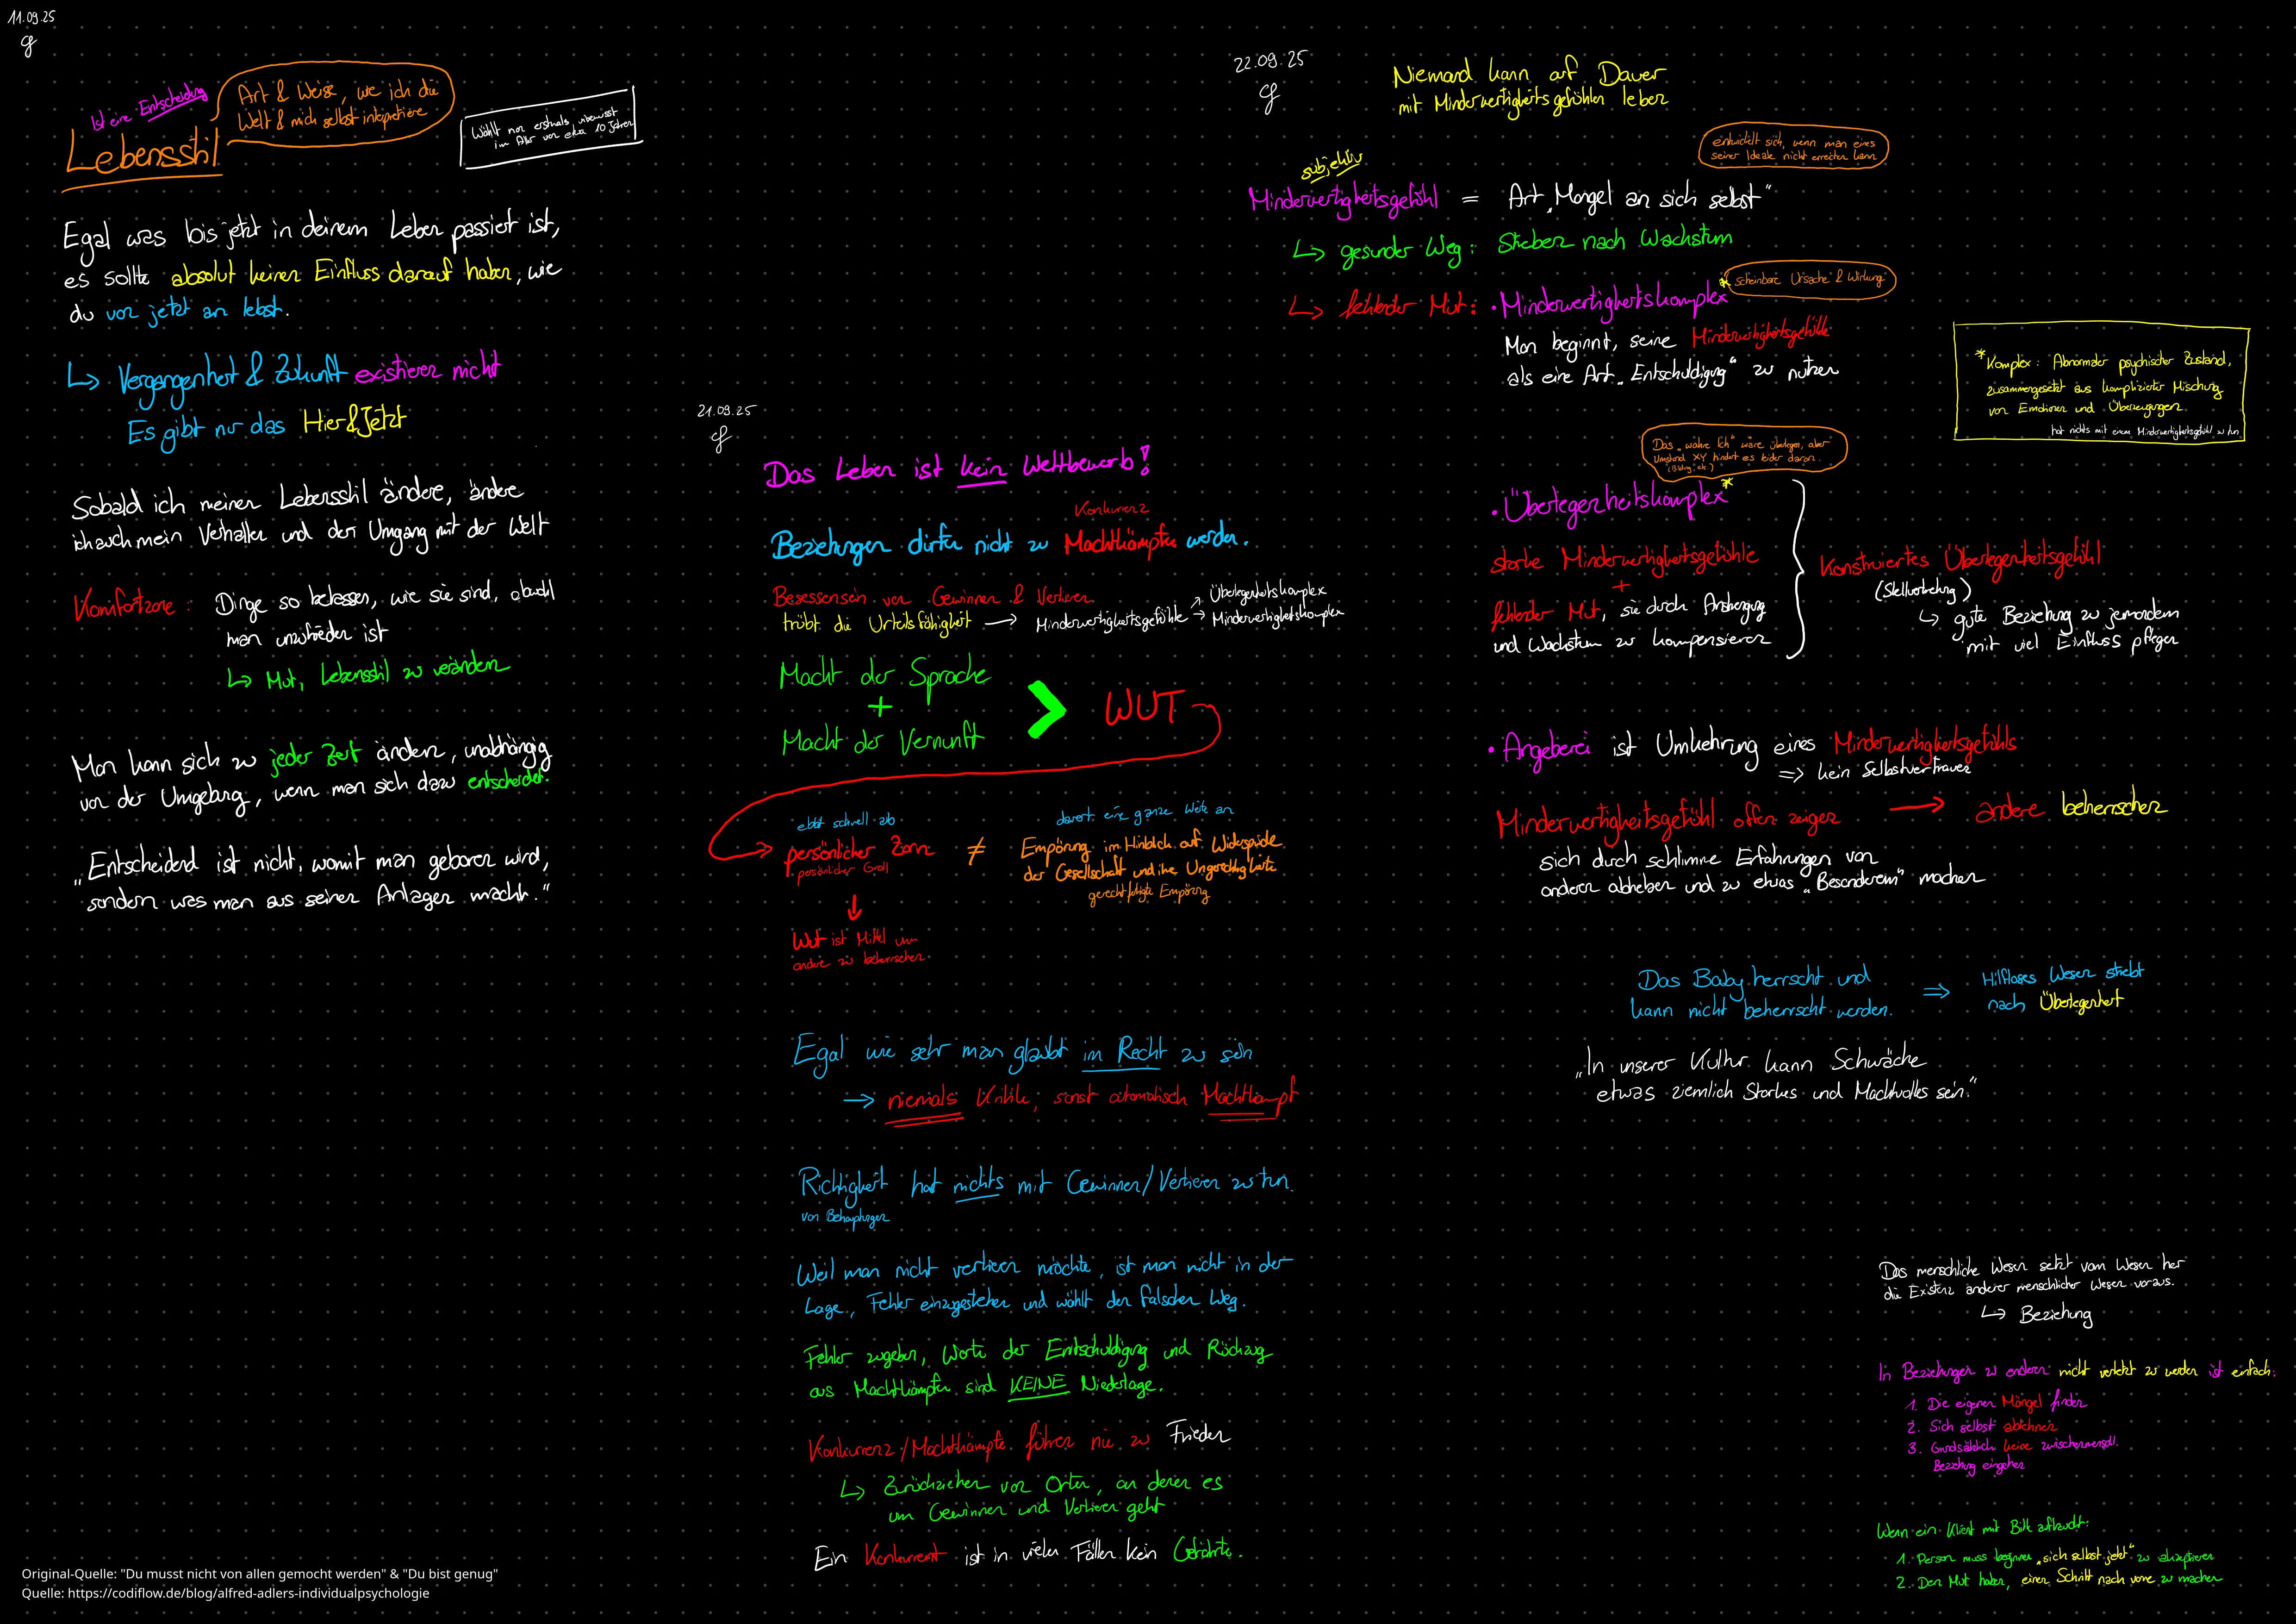 11.09.25
Ist eine Entscheidung
Art & Weise, wie ich die
Welt & mich selbst interpretiere
Lebensstil
Wählt man erstmals unbewusst
im Alter von etwa 10 Jahren
Egal was bis jetzt in deinem Leben passiert ist,
es sollte absolut keinen Einfluss darauf haben, wie
du von jetzt an lebst.
↳ Vergangenheit & Zukunft existieren nicht
Es gibt nur das Hier&Jetzt
Sobald ich meinen Lebensstil ändere, ändere
ich auch mein Verhalten und den Umgang mit der Welt
Komfortzone: Dinge so belassen, wie sie sind, obwohl
man unzufrieden ist
↳ Mut, Lebensstil zu verändern
Man kann sich zu jeder Zeit ändern, unabhängig
von der Umgebung, wenn man sich dazu entscheidet.
„Entscheidend ist nicht, womit man geboren wird,
sondern was man aus seinen Anlagen macht."
21.09.25
Das Leben ist kein Wettbewerb!
Konkurrenz
Beziehungen dürfen nicht zu Machtkämpfen werden.
Besessensein von Gewinnen & Verlieren
trübt die Urteilsfähigkeit → Minderwertigkeitsgefühle
↗ Überlegenheitskomplex
→ Minderwertigkeitskomplex
Macht der Sprache
+
Macht der Vernunft
> WUT
ebbt schnell ab
persönlicher Zorn
persönlicher Groll
≠
dauert eine ganze Weile an
Empörung im Hinblick auf Widersprüche
der Gesellschaft und ihre Ungerechtigkeiten
gerechtfertigte Empörung
↓
Wut ist Mittel um
andere zu beherrschen.
Egal wie sehr man glaubt im Recht zu sein
→ niemals Kritik, sonst automatisch Machtkampf
Richtigkeit hat nichts mit Gewinnen/Verlieren zu tun.
von Behauptungen
Weil man nicht verlieren möchte, ist man nicht in der
Lage, Fehler einzugestehen und wählt den falschen Weg.
Fehler zugeben, Worte der Entschuldigung und Rückzug
aus Machtkämpfen sind KEINE Niederlage.
Konkurrenz/Machtkämpfe führen nie zu Frieden
↳ Zurückziehen von Orten, an denen es
um Gewinnen und Verlieren geht
Ein Konkurrent ist in vielen Fällen kein Gefährte.
22.09.25
Niemand kann auf Dauer
mit Minderwertigkeitsgefühlen leben
entwickelt sich, wenn man eines
seiner Ideale nicht erreichen kann
subjektiv
Minderwertigkeitsgefühl = Art „Mangel an sich selbst"
↳ gesunder Weg: Streben nach Wachstum
scheinbare Ursache & Wirkung
↳ fehlender Mut: • Minderwertigkeitskomplex*
Man beginnt, seine Minderwertigkeitsgefühle
als eine Art „Entschuldigung" zu nutzen
*Komplex: Abnormaler psychischer Zustand,
zusammengesetzt aus komplizierter Mischung
von Emotionen und Überzeugungen.
hat nichts mit einem Minderwertigkeitsgefühl zu tun
Das „wahre Ich" wäre überlegen, aber
Umstand XY hindert es leider daran.
(Bildung, etc.)
• Überlegenheitskomplex*
starke Minderwertigkeitsgefühle
+
fehlender Mut, sie durch Anstrengung
und Wachstum zu kompensieren
Konstruiertes Überlegenheitsgefühl
↳ gute Beziehung zu jemandem
mit viel Einfluss pflegen
• Angeberei ist Umkehrung eines Minderwertigkeitsgefühls
⇒ kein Selbstvertrauen
Minderwertigkeitsgefühl offen zeigen → andere beherrschen
sich durch schlimme Erfahrungen von
anderen abheben und zu etwas „Besonderem" machen
Das Baby herrscht und
kann nicht beherrscht werden.
⇒ Hilfloses Wesen strebt
nach Überlegenheit
„In unserer Kultur kann Schwäche
etwas ziemlich Starkes und Machtvolles sein."
Das menschliche Wesen setzt vom Wesen her
die Existenz anderer menschlicher Wesen voraus.
↳ Beziehung
In Beziehungen zu anderen nicht verletzt zu werden ist einfach:
1. Die eigenen Mängel finden
2. Sich selbst ablehnen
3. Grundsätzlich keine zwischenmenschl.
Beziehung eingehen
Wenn ein Klient mit Bitte auftaucht:
1. Person muss beginnen „sich selbst jetzt" zu akzeptieren
2. Den Mut haben, einen Schritt nach vorne zu machen
Original-Quelle: "Du musst nicht von allen gemocht werden" & "Du bist genug"
Quelle: https://codiflow.de/blog/alfred-adlers-individualpsychologie